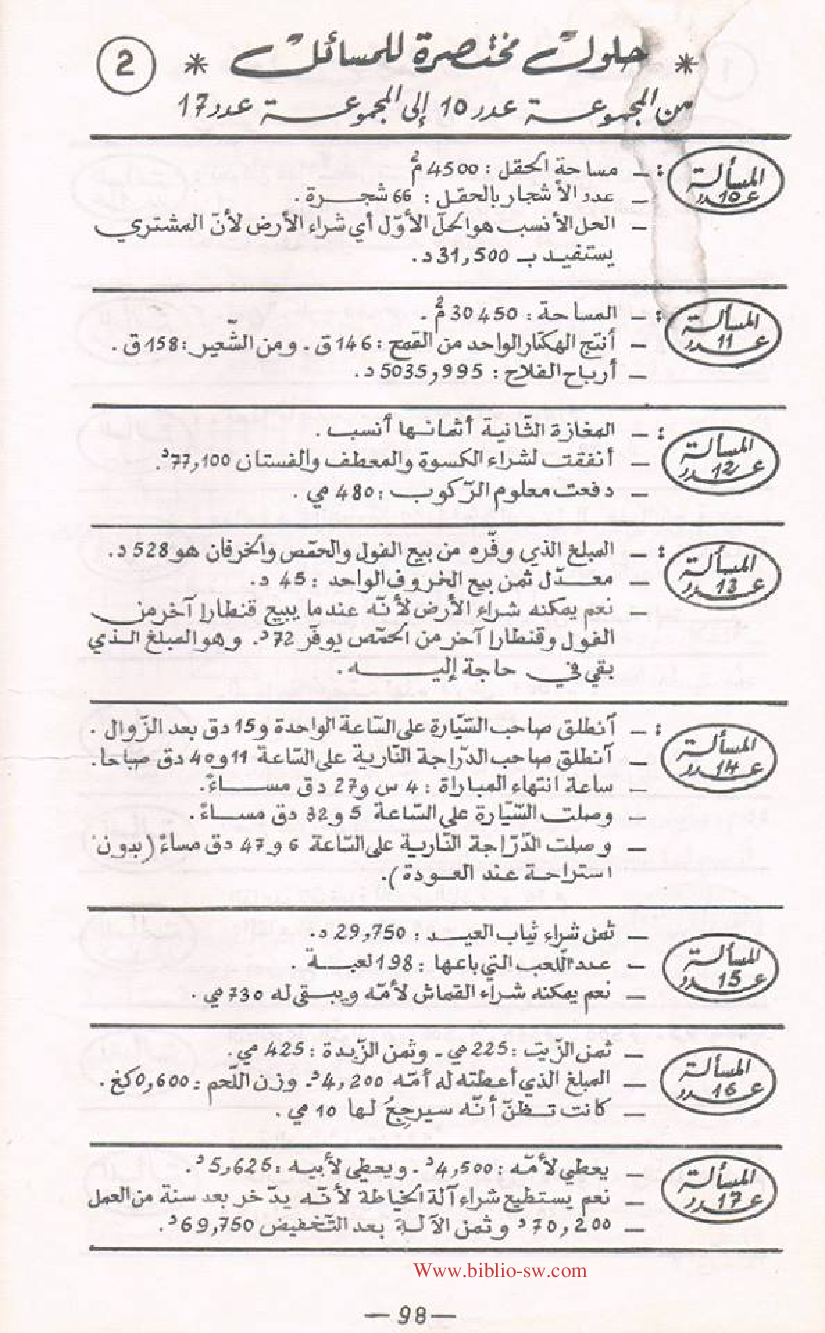 * حلول مختصرة للمسائل * 2
من المجموعة عدد 10 إلى المجموعة عدد 17
المسألة عدد 10 : — مساحة الحقل : 4500 م²
— عدد الأشجار بالحقل : 66 شجرة .
— الحل الأنسب هو الحلّ الأوّل أي شراء الأرض لأنّ المشتري
يستفيد بـ 31,500 د.
المسألة عدد 11 : — المساحة : 30450 م² .
— أنتج الهكتار الواحد من القمح : 146 ق . ومن الشّعير : 158 ق .
— أرباح الفلاح : 5035,995 د.
المسألة عدد 12 : — المغازة الثّانية أثمانها أنسب .
— أنفقت لشراء الكسوة والمعطف والفستان 77,100 د.
— دفعت معلوم الرّكوب : 480 مي .
المسألة عدد 13 : — المبلغ الذي وفّره من بيع الفول والحمّص والخرفان هو 528 د.
— معدّل ثمن بيع الخروف الواحد : 45 د.
— نعم يمكنه شراء الأرض لأنّه عندما يبيع قنطارا آخر من
الفول وقنطارا آخر من الحمّص يوفّر 72 د. وهو المبلغ الذي
بقي في حاجة إليه .
المسألة عدد 14 : — آنطلق صاحب السّيّارة على السّاعة الواحدة و15 دق بعد الزّوال .
— آنطلق صاحب الدّراجة النّارية على السّاعة 11 و40 دق صباحا.
— ساعة انتهاء المباراة : 4 س و27 دق مساءً.
— وصلت السّيّارة على السّاعة 5 و32 دق مساءً.
— وصلت الدّرّاجة النّارية على السّاعة 6 و47 دق مساءً (بدون
استراحة عند العودة).
المسألة عدد 15 — ثمن شراء ثياب العيد : 29,750 د.
— عدد اللّعب التي باعها : 198 لعبة .
— نعم يمكنه شراء القماش لأمّه ويبقى له 730 مي .
المسألة عدد 16 — ثمن الزّيت : 225 مي . وثمن الزّبدة : 425 مي.
— المبلغ الذي أعطته له أمّه 4,200 د. وزن اللّحم : 0,600 كغ .
— كانت تظنّ أنّه سيرجع لها 10 مي .
المسألة عدد 17 — يعطي لأمّه : 4,500 د . ويعطي لأبيه : 5,625 د.
— نعم يستطيع شراء آلة الخياطة لأنّه يدّخر بعد سنة من العمل
— 70,200 د وثمن الآلة بعد التّخفيض 69,750 د.
Www.biblio-sw.com
— 98 —